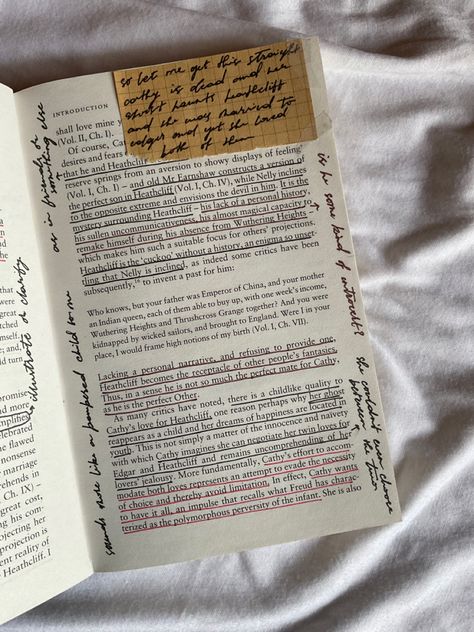 so let me get this straight
cathy is dead and her
spirit haunts heathcliff
and she was married to
edgar and yet she loved
both of them
INTRODUCTION
shall love mine y
(Vol. II, Ch. I).
Of course, Cat
desires and fears
that he and Heathcliff
reserve springs from an aversion to showy displays of feeling'
(Vol. I, Ch. I) – and old Mr Earnshaw constructs a version of
the perfect son in Heathcliff (Vol. I, Ch. IV), while Nelly inclines
to the opposite extreme and envisions the devil in him. It is the
mystery surrounding Heathcliff – his lack of a personal history,
his sullen uncommunicativeness, his almost magical capacity to
remake himself during his absence from Wuthering Heights –
which makes him such a suitable focus for others' projections.
Heathcliff is the 'cuckoo' without a history, an enigma so unset-
tling that Nelly is inclined, as indeed some critics have been
subsequently,¹⁶ to invent a past for him:
Who knows, but your father was Emperor of China, and your mother
an Indian queen, each of them able to buy up, with one week's income,
Wuthering Heights and Thrushcross Grange together? And you were
kidnapped by wicked sailors, and brought to England. Were I in your
place, I would frame high notions of my birth (Vol. I, Ch. VII).
Lacking a personal narrative, and refusing to provide one,
Heathcliff becomes the receptacle of other people's fantasies.
Thus, in a sense he is not so much the perfect mate for Cathy,
as he is the perfect Other.
As many critics have noted, there is a childlike quality to
Cathy's love for Heathcliff, one reason perhaps why her ghost
reappears as a child and her dreams of happiness are located in
youth. This is not simply a matter of the innocence and naivety
with which Cathy imagines she can negotiate her twin loves for
Edgar and Heathcliff and remains uncomprehending of her
lovers' jealousy. More fundamentally, Cathy's effort to accom-
modate both loves represents an attempt to evade the necessity
of choice and thereby avoid limitation. In effect, Cathy wants
to have it all, an impulse that recalls what Freud has charac-
terized as the polymorphous perversity of the infant. She is also
as in friends or
something else
sounds more like a pampered child to me
is he some kind of introvert?
she couldn't even choose
between the two
illustrate or clarify
great
tched
ne; and
ld turn
and more
mplifies
elebrated
he flawed
nonsense
marriage
trehends
Ch. IX) –
great cost,
ng his com-
ojecting her
projection is
ent reality of
– Heathcliff. I